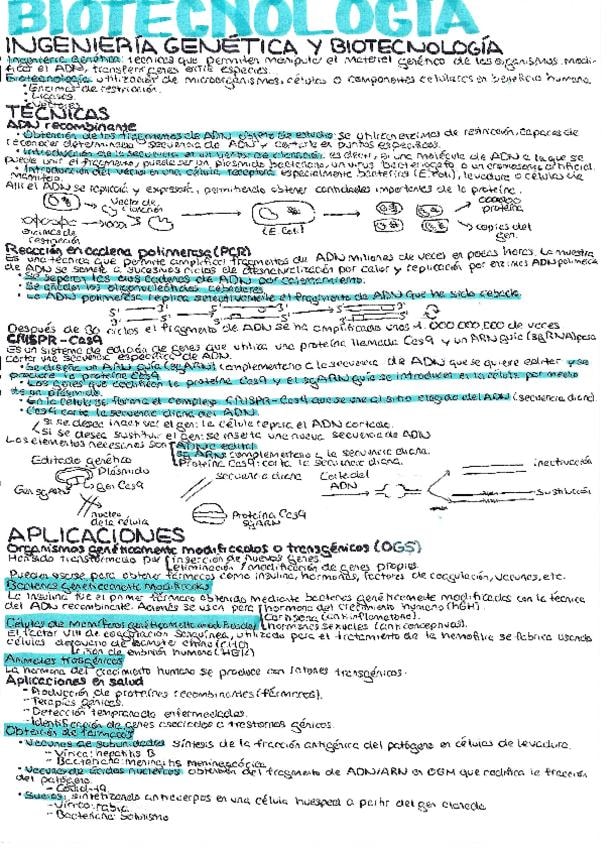 BIOTECNOLOGÍA
INGENIERÍA GENÉTICA Y BIOTECNOLOGÍA
Ingeniería Genética: técnicas que permiten manipular el material genético de los organismos, modi-
ficar el ADN, transferir genes entre especies.
Biotecnología: utilización de microorganismos, células o componentes celulares en beneficio humano.
• Enzimas de restricción.
• Ligasas
• Vectores
TÉCNICAS
ADN recombinante
• Obtención de los fragmentos de ADN objeto de estudio: se utilizan enzimas de restricción, capaces de
reconocer determinada secuencia de ADN y cortarle en puntos específicos.
• Introducción de la secuencia en un vector de clonación, es decir, en una molécula de ADN a la que se
puede unir el fragmento, puede ser un plásmido bacteriano, un virus bacteriófago o un cromosoma artificial.
• Introducción del vector en una célula receptora especialmente bacterias (E. Coli), levadura o células de
mamífero.
Allí el ADN se replicará y expresará, permitiendo obtener cantidades importantes de la proteína.
Vector de
clonación
enzimas de
restricción
(E. Coli)
proteína
copias del
gen.
Reacción en cadena polimerasa (PCR)
Es una técnica que permite amplificar fragmentos de ADN millones de veces en pocas horas. La muestra
de ADN se somete a sucesivos ciclos de desnaturalización por calor y replicación por enzimas ADN polimerasa
• Se separan las dos cadenas de ADN por calentamiento.
• Se añaden los oligonucleótidos cebadores.
• La ADN polimerasa replica selectivamente el fragmento de ADN que ha sido cebado
5' 3' 5' 3'
3' 5' 3' 5'
Después de 30 ciclos el fragmento de ADN se ha amplificado unas 1.000.000.000 de veces
CRISPR-Cas9
Es un sistema de edición de genes que utiliza una proteína llamada Cas9 y un ARN guía (sgRNA) para
cortar una secuencia específica de ADN.
• Se diseña un ARN guía (sgARN) complementario a la secuencia de ADN que se quiere editar y se
produce la proteína Cas9
• Los genes que codifican la proteína Cas9 y el sgARN guía se introducen en la célula por medio
de un plásmido.
• En la célula se forma el complejo CRISPR-Cas9 que se une al sitio elegido del ADN (secuencia diana).
• Cas9 corta la secuencia diana del ADN.
si se desea inactivar el gen: la célula repara el ADN cortado.
si se desea sustituir el gen: se inserta una nueva secuencia de ADN
Los elementos necesarios son: ADN a editar
sg ARN: complementario a la secuencia diana.
Proteína Cas9: corta la secuencia diana.
Editado genético
Plásmido
Gen sgARN
Gen Cas9
núcleo
de la célula
secuencia diana
Proteína Cas9
sgARN
Corte del
ADN
inactivación
sustitución
APLICACIONES
Organismos genéticamente modificados o transgénicos (OGS)
Han sido transformado por inserción de nuevos genes
eliminación/modificación de genes propios.
Pueden usarse para obtener fármacos como insulina, hormonas, factores de coagulación, vacunas, etc.
Bacterias genéticamente modificadas
La insulina fue el primer fármaco obtenido mediante bacterias genéticamente modificadas con la técnica
del ADN recombinante. Además se usan para hormona del crecimiento humano (hGH).
Cortisona (antiinflamatorio).
hormonas sexuales (anticonceptivos).
Células de mamíferos genéticamente modificadas
El factor VIII de coagulación sanguínea, utilizado para el tratamiento de la hemofilia se fabrica usando
células de ovario de hámster chino (CHO)
riñón de embrión humano (HEK)
Animales trasgénicos
La hormona del crecimiento humano se produce con ratones transgénicos.
Aplicaciones en salud
- Producción de proteínas recombinantes (fármacos).
- Terapias génicas.
- Detección temprana de enfermedades.
- Identificación de genes asociados a trastornos génicos.
Obtención de fármacos
• Vacunas de subunidades síntesis de la fracción antigénica del patógeno en células de levadura.
- Vírica: hepatitis B
- Bacteriana: meningitis meningocócica
• Vacunas de ácidos nucleicos obtención del fragmento de ADN/ARN en OGM que codifica la fracción
del patógeno.
- Covid-19
• Sueros: sintetizando anticuerpos en una célula huésped a partir del gen clonado
- Vírico: rabia.
- Bacteriana: botulismo